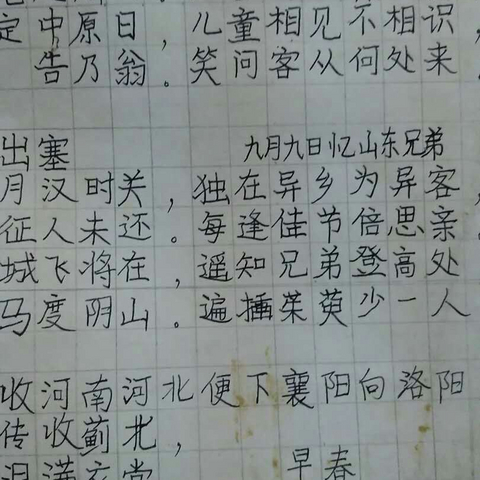 定中原日，儿童相见不相识，
告乃翁。笑问客从何处来。
出塞 九月九日忆山东兄弟
月汉时关，独在异乡为异客，
征人未还。每逢佳节倍思亲。
城飞将在，遥知兄弟登高处
马度阴山。遍插茱萸少一人
收河南河北 便下襄阳向洛阳
传收蓟北，
泪满衣裳 早春